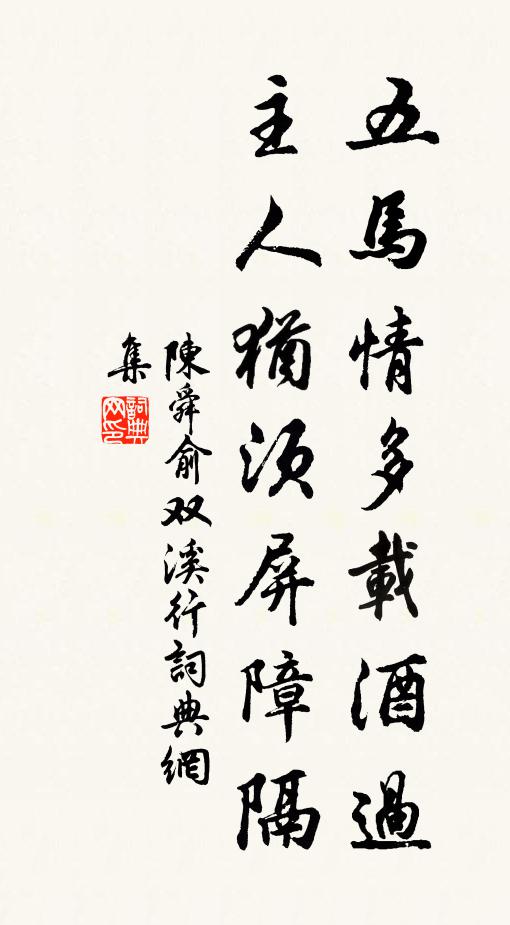 五馬情多載酒過
主人猶須屏障隔
陳舜俞双溪行詞典網
集
詞典
网印